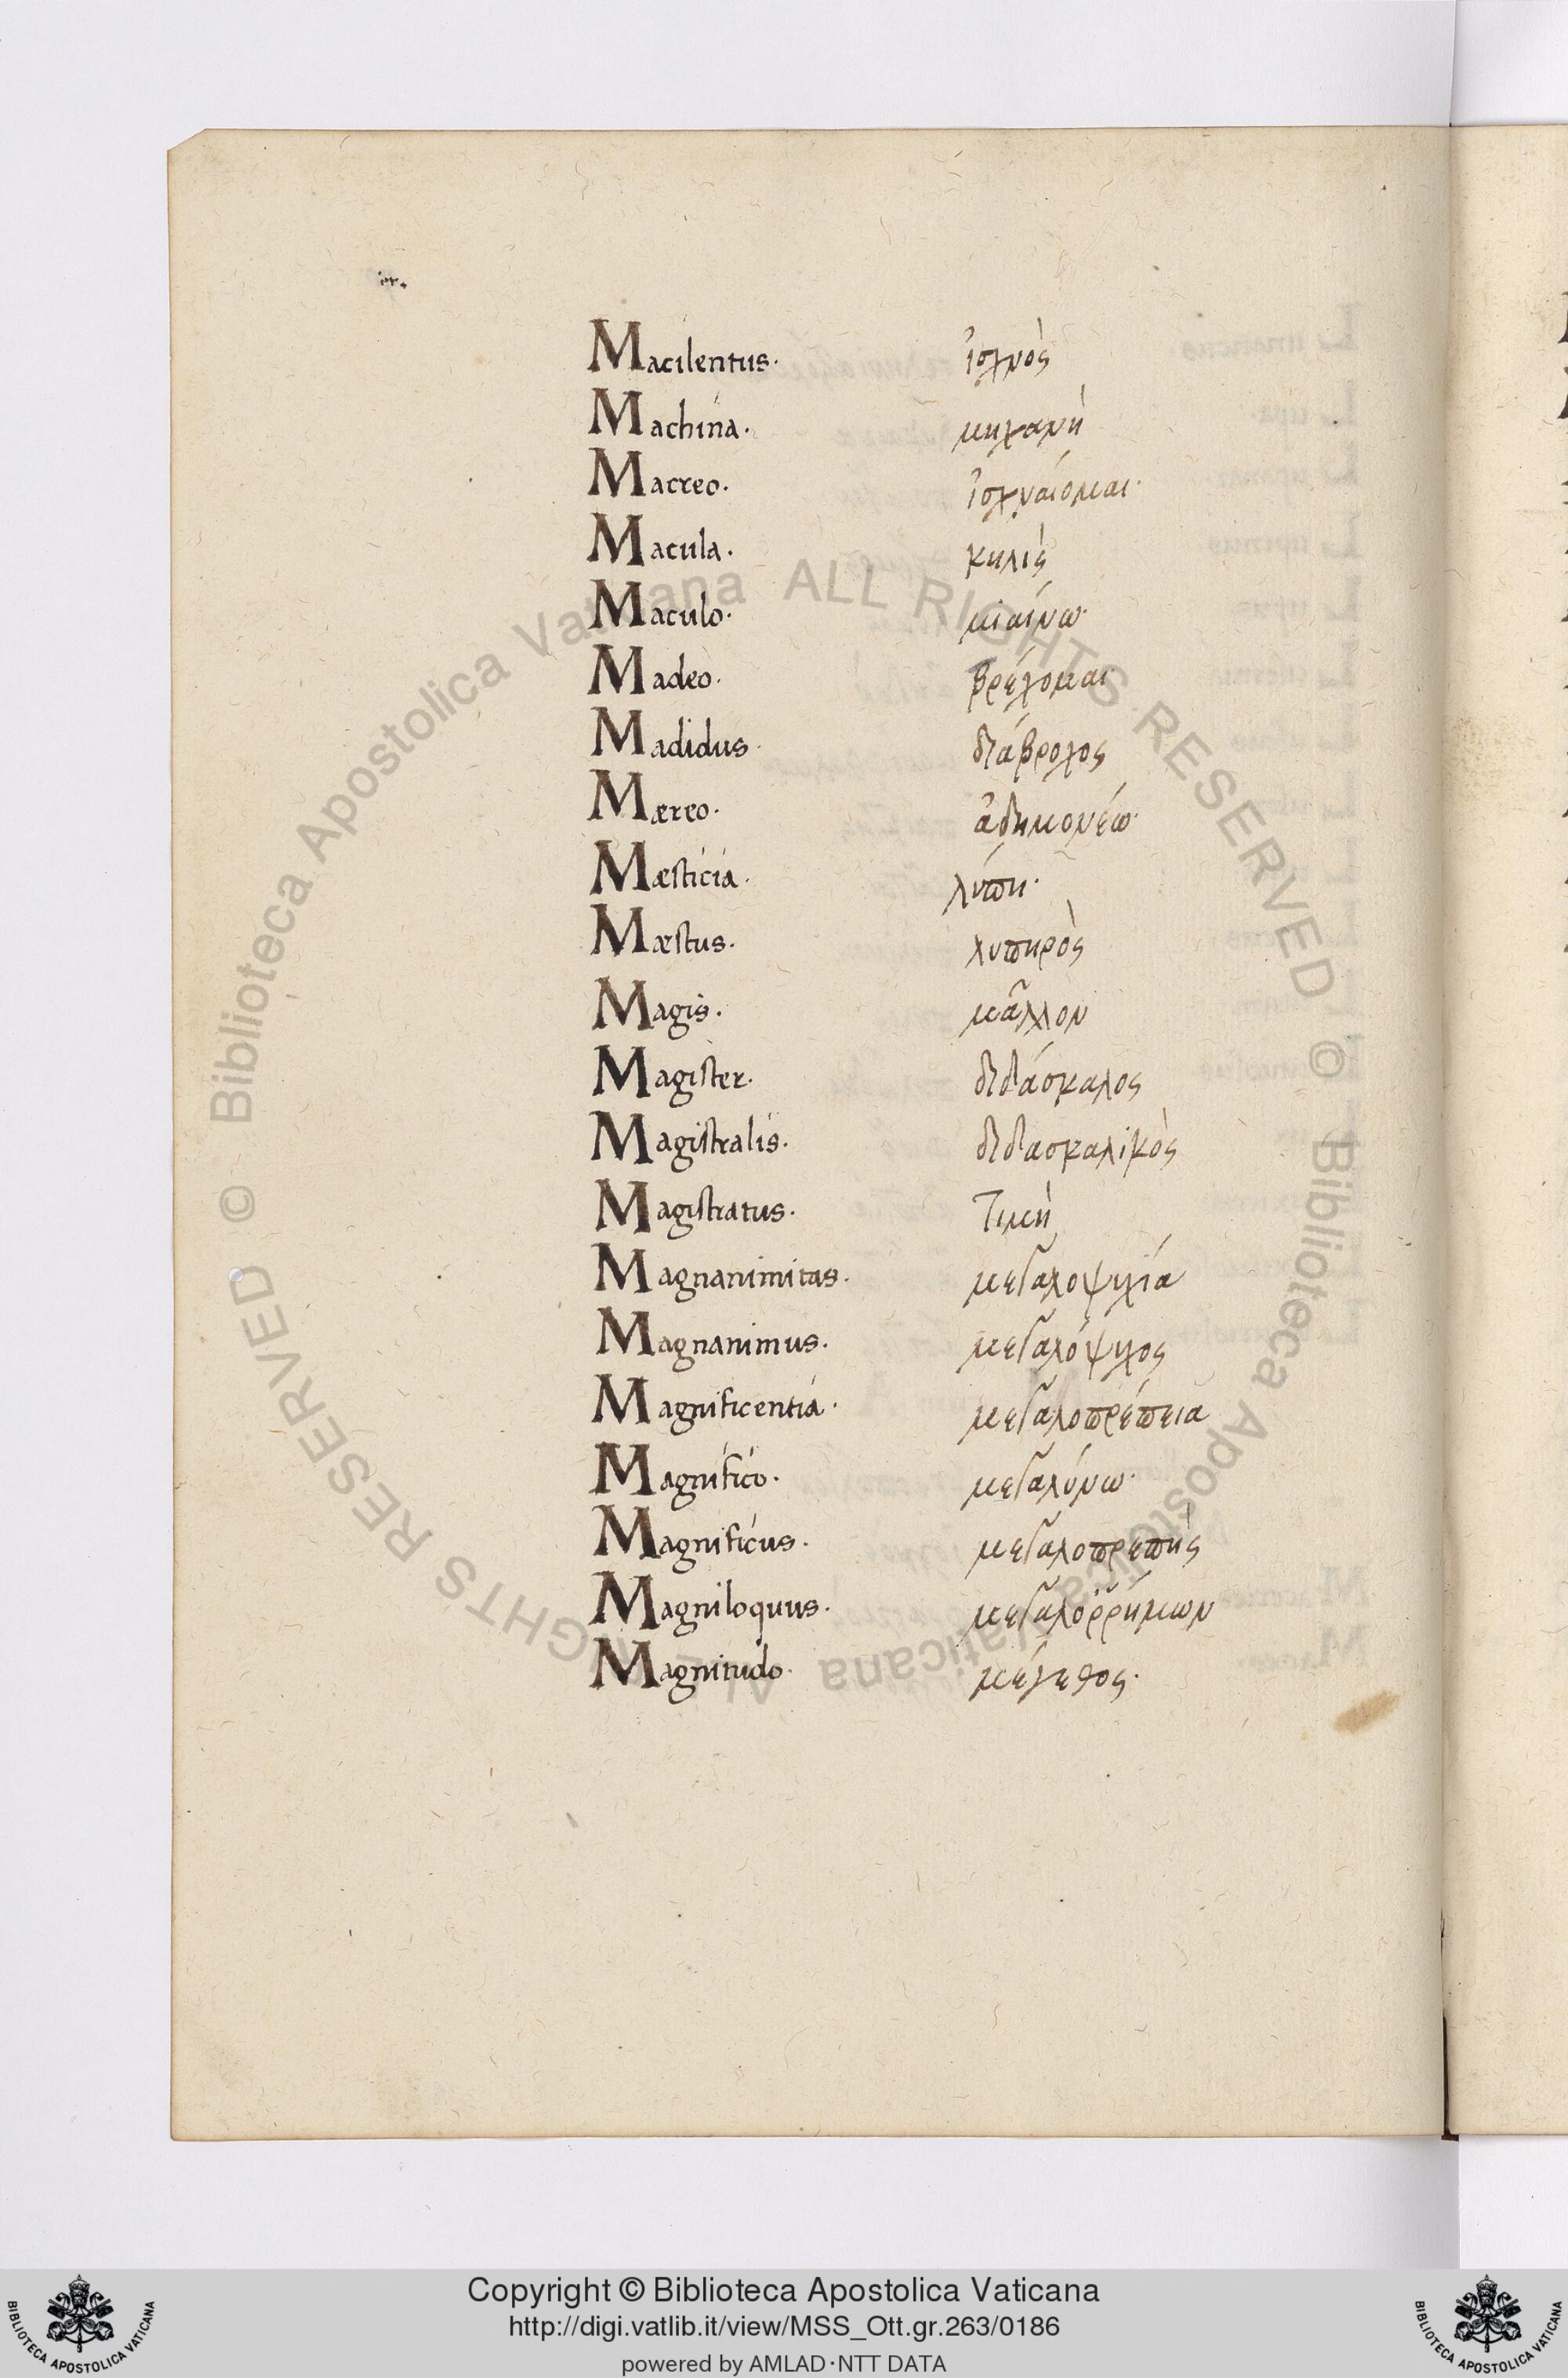 Macilentus. ἰσχνὸς
Machina. μηχανὴ
Macreo. ἰσχναίομαι·
Macula. κηλὶς
Maculo. μιαίνω·
Madeo. βρέχομαι
Madidus. διάβροχος
Mæreo. ἀδημονέω·
Mæsticia. λύπη·
Mæstus. λυπηρὸς
Magis. μᾶλλον
Magister. διδάσκαλος
Magistralis. διδασκαλικὸς
Magistratus. Τιμὴ
Magnanimitas. μεγαλοψυχία
Magnanimus. μεγαλόψυχος
Magnificentia. μεγαλοπρέπεια
Magnifico. μεγαλύνω·
Magnificus. μεγαλοπρεπὴς
Magniloquus. μεγαλοῤῥήμων
Magnitudo. μέγεθος·
© Biblioteca Apostolica Vaticana ALL RIGHTS RESERVED © Biblioteca Apostolica Vaticana ALL RIGHTS RESERVED
Copyright © Biblioteca Apostolica Vaticana
http://digi.vatlib.it/view/MSS_Ott.gr.263/0186
powered by AMLAD·NTT DATA
BIBLIOTECA APOSTOLICA VATICANA
BIBLIOTECA APOSTOLICA VATICANA